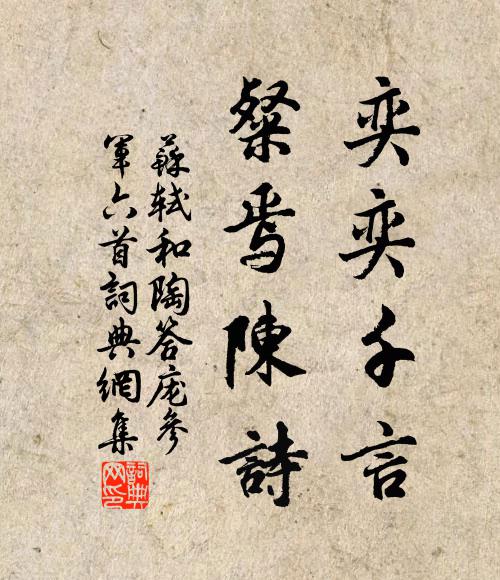 奕奕千言
粲焉陳詩
蘇軾和陶答庞參
軍六首詞典網集
詞典
网印